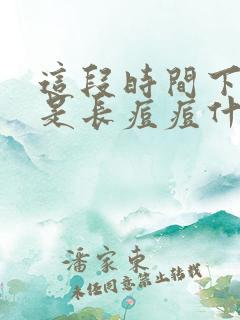 這段時間下
是長痘痘什
潘家東
未經同意禁止轉載